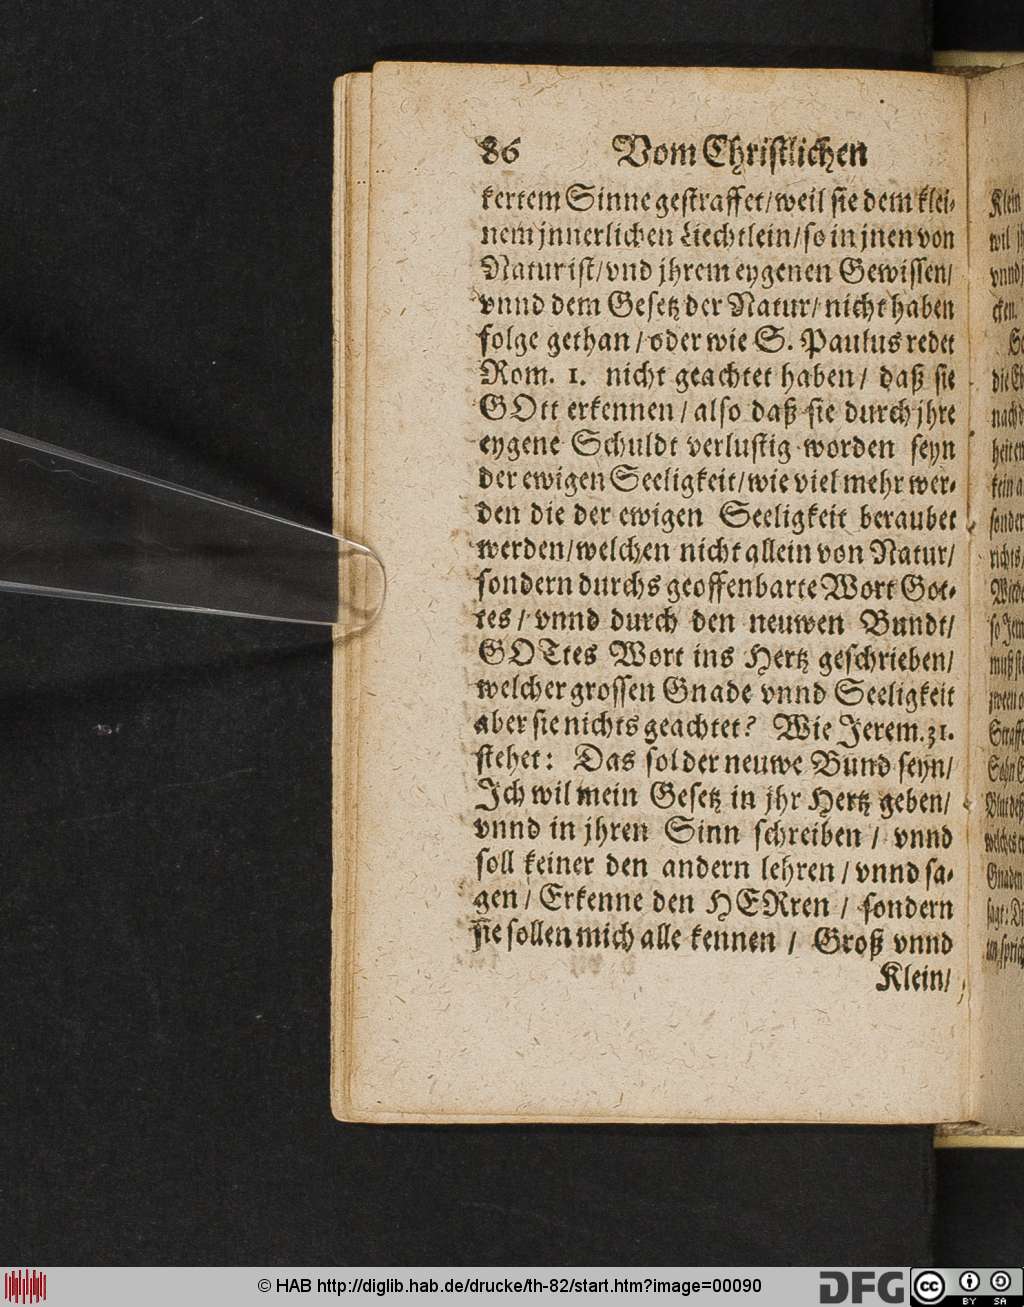 86 Vom Christlichen
kertem Sinne gestraffet/weil sie dem klei-
nem jnnerlichen Liechtlein/so in jnen von
Natur ist/vnd jhrem eygenen Gewissen/
vnnd dem Gesetz der Natur/nicht haben
folge gethan/oder wie S. Paulus redet
Rom. 1. nicht geachtet haben/ daß sie
GOtt erkennen/also daß sie durch jhre
eygene Schuldt verlustig worden seyn
der ewigen Seeligkeit/wie viel mehr wer-
den die der ewigen Seeligkeit beraubet
werden/welchen nicht allein von Natur/
sondern durchs geoffenbarte Wort Got-
tes/ vnnd durch den neuwen Bundt/
GOTtes Wort ins Hertz geschrieben/
welcher grossen Gnade vnnd Seeligkeit
aber sie nichts geachtet? Wie Jerem. 31.
stehet: Das sol der neuwe Bund seyn/
Ich wil mein Gesetz in jhr Hertz geben/
vnnd in jhren Sinn schreiben/ vnnd
soll keiner den andern lehren/vnnd sa-
gen/ Erkenne den HERren/ sondern
sie sollen mich alle kennen/ Groß vnnd
Klein/
© HAB http://diglib.hab.de/drucke/th-82/start.htm?image=00090
DFG
cc
BY SA